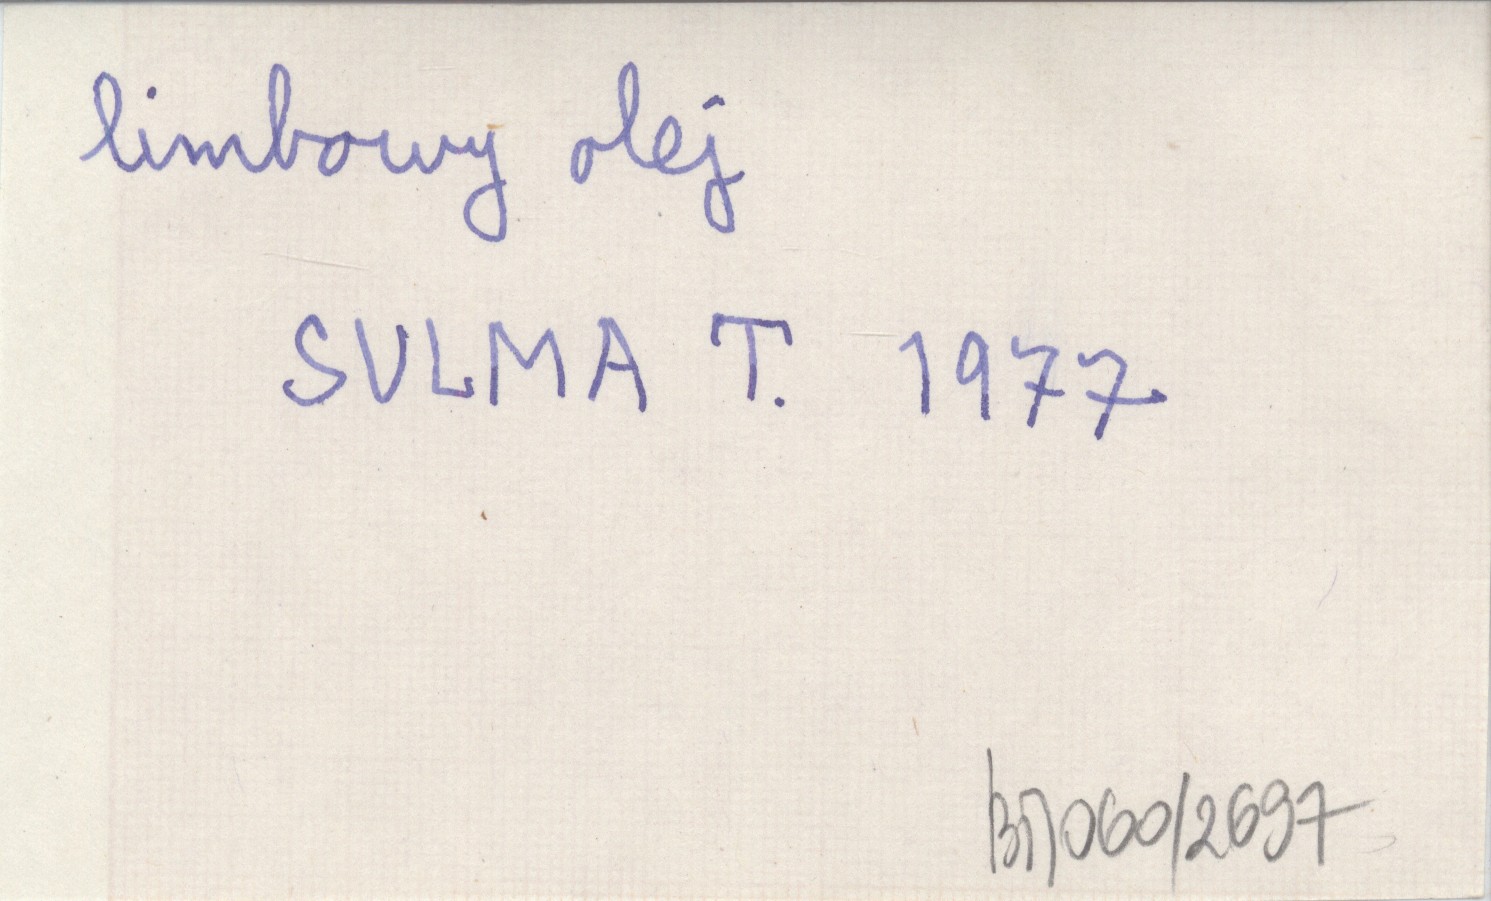 limbowy olej
SULMA T. 1977
060/2697